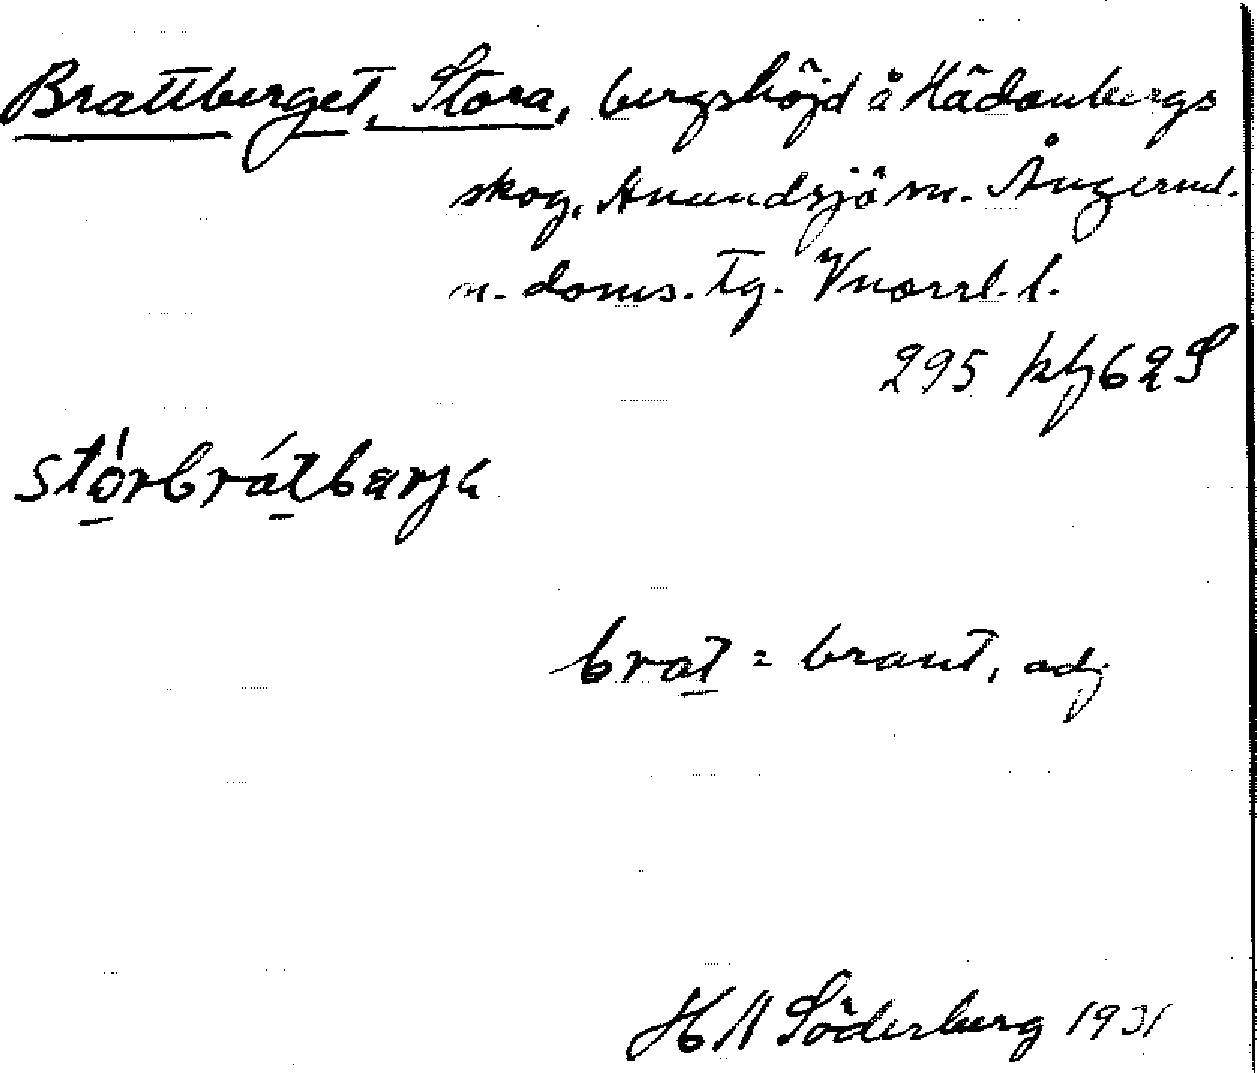 Brattberget, Stora, bergshöjd å Hädanbergs
skog, Anundsjö sn. Ångerml.
n. doms. tg. Vnorrl. l.
295 kbl 62 S
stórbrátbarjä
brat = brant, adj
H A Söderberg 1931